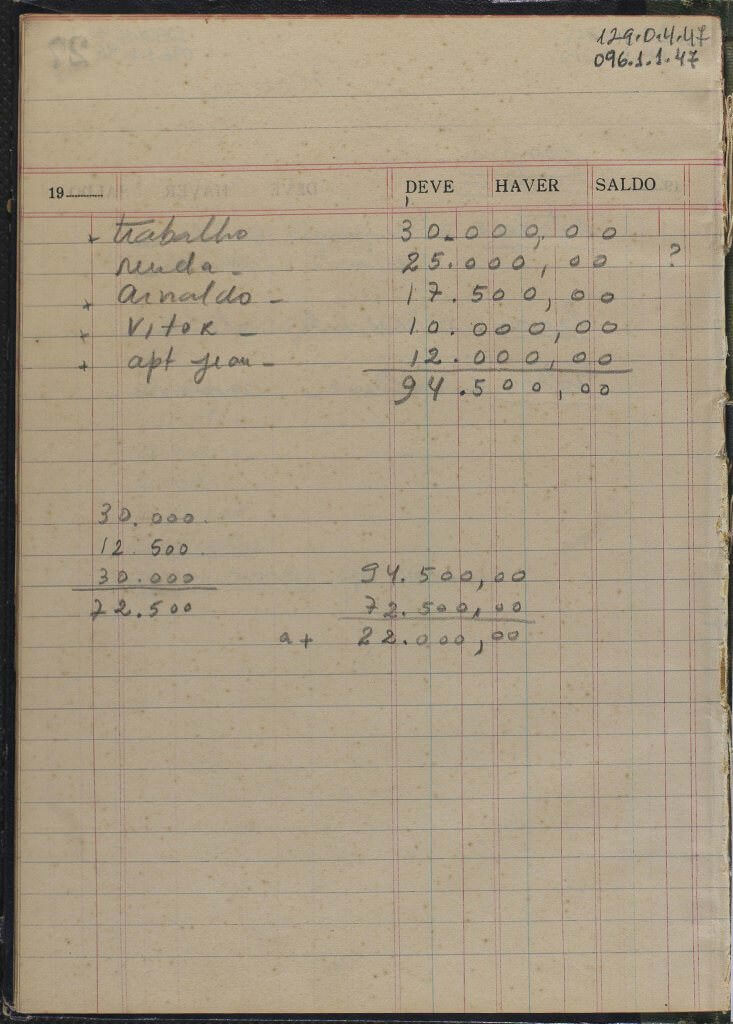 129.0.4.47
096.1.1.47
19 DEVE HAVER SALDO
+ trabalho 30.000,00
renda - 25.000,00 ?
+ Arnaldo - 17.500,00
+ Vitor - 10.000,00
+ apt Jean - 12.000,00
94.500,00
30.000
12.500
30.000 94.500,00
72.500 72.500,00
a + 22.000,00